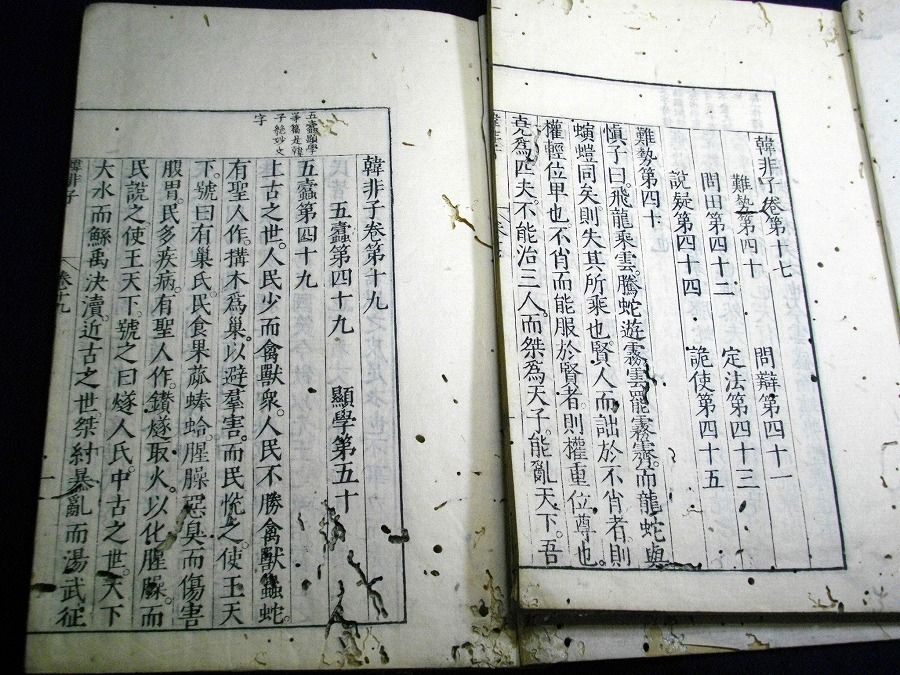 韓非子卷第十七
難勢第四十　問辯第四十一
問田第四十二　定法第四十三
說疑第四十四　詭使第四十五
難勢第四十
慎子曰。飛龍乘雲。騰蛇遊霧。雲罷霧霽。而龍蛇與
螾螘同矣。則失其所乘也。賢人而詘於不肖者。則
權輕位卑也。不肖而能服於賢者。則權重位尊也。
堯爲匹夫。不能治三人。而桀爲天子。能亂天下。吾
五蠹顯學
等篇是韓
子絕妙文
字
韓非子卷第十九
五蠹第四十九　顯學第五十
五蠹第四十九
上古之世。人民少而禽獸衆。人民不勝禽獸蟲蛇。
有聖人作。搆木爲巢。以避羣害。而民悅之。使王天
下。號曰有巢氏。民食果蓏蜯蛤。腥臊惡臭。而傷害
腹胃。民多疾病。有聖人作。鑽燧取火。以化腥臊。而
民說之。使王天下。號之曰燧人氏。中古之世。天下
大水。而鯀禹決瀆。近古之世。桀紂暴亂。而湯武征
韓非子　卷十九